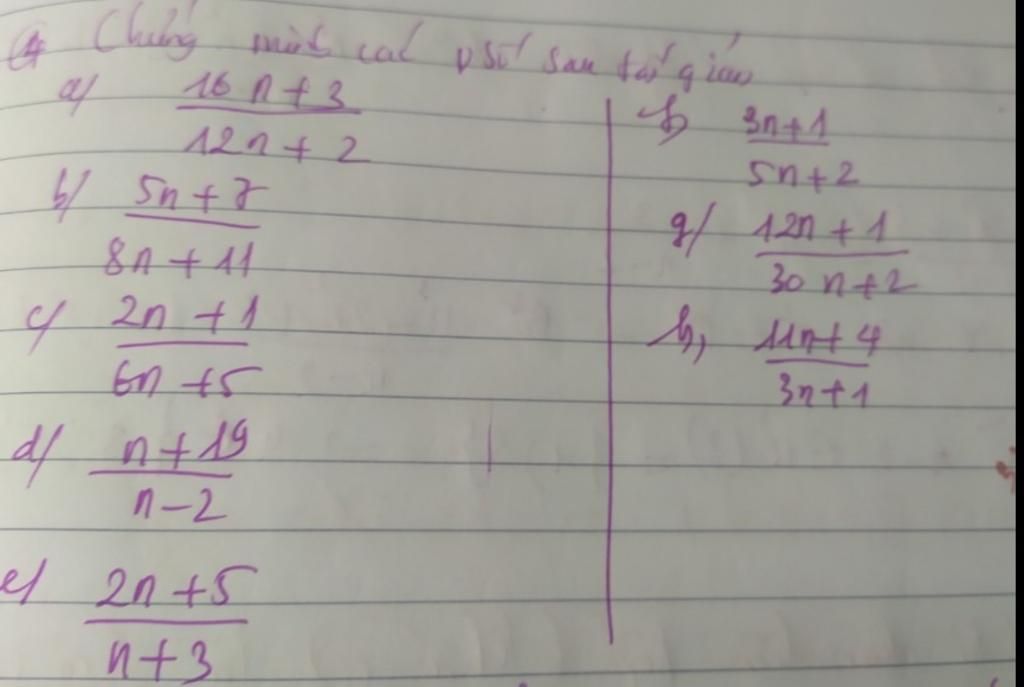 Chứng minh các psố sau tối giản
a/ 16n+3
12n+2
b/ 5n+7
8n+11
c/ 2n+1
6n+5
d/ n+19
n-2
e/ 2n+5
n+3
3n+1
5n+2
g/ 12n+1
30n+2
h, 11n+4
3n+1